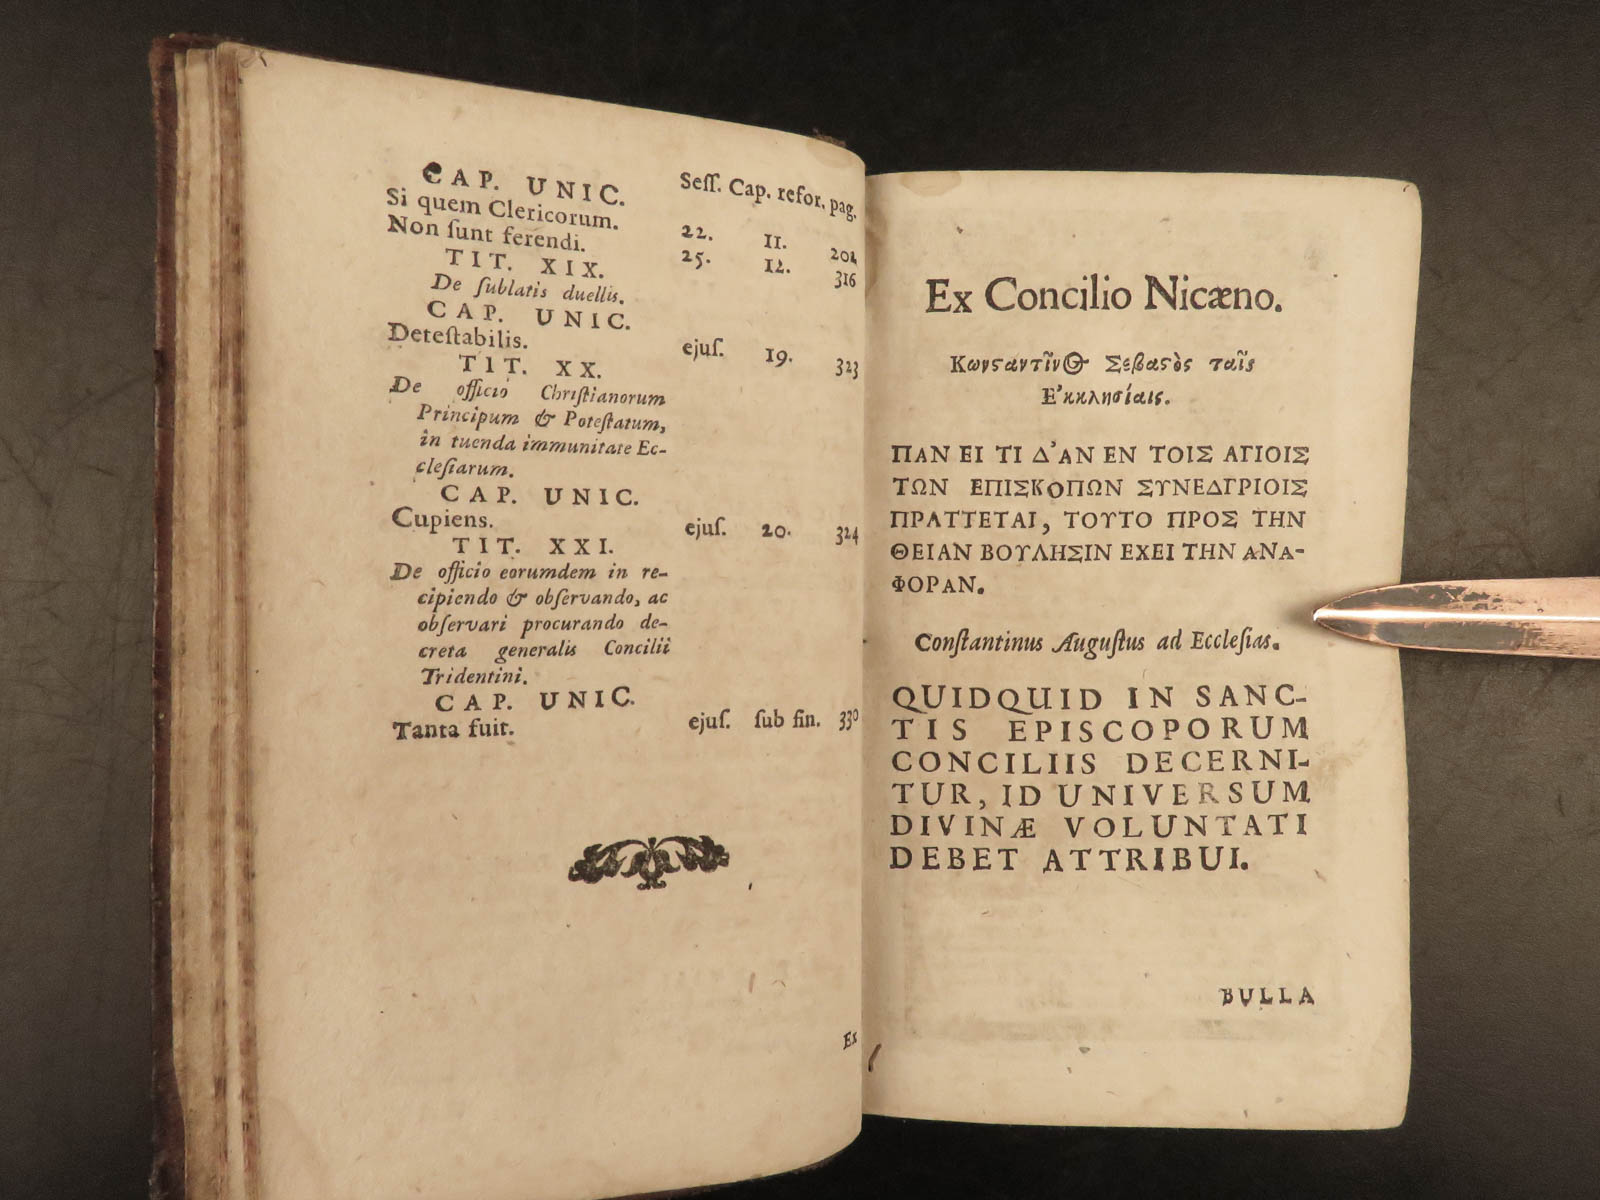 CAP. UNIC. Seſſ. Cap. refor. pag.
Si quem Clericorum. 22. 11. 202
Non ſunt ferendi. 25. 12. 316
TIT. XIX.
De ſublatis duellis.
CAP. UNIC.
Deteſtabilis. ejuſ. 19. 323
TIT. XX.
De officio Chriſtianorum
Principum & Poteſtatum,
in tuenda immunitate Ec-
cleſiarum.
CAP. UNIC.
Cupiens. ejuſ. 20. 324
TIT. XXI.
De officio eorumdem in re-
cipiendo & obſervando, ac
obſervari procurando de-
creta generalis Concilii
Tridentini.
CAP. UNIC.
Tanta fuit. ejuſ. ſub fin. 330
Ex
Ex Concilio Nicæno.
Κωνϛαντῖν Σεβαϛὸς ταῖς
Ἐκκλησίαις.
ΠΑΝ ΕΙ ΤΙ Δ'ΑΝ ΕΝ ΤΟΙΣ ΑΓΙΟΙΣ
ΤΩΝ ΕΠΙΣΚΟΠΩΝ ΣΥΝΕΔΓΡΙΟΙΣ
ΠΡΑΤΤΕΤΑΙ, ΤΟΥΤΟ ΠΡΟΣ ΤΗΝ
ΘΕΙΑΝ ΒΟΥΛΗΣΙΝ ΕΧΕΙ ΤΗΝ ΑΝΑ-
ΦΟΡΑΝ.
Conſtantinus Auguſtus ad Eccleſias.
QUIDQUID IN SANC-
TIS EPISCOPORUM
CONCILIIS DECERNI-
TUR, ID UNIVERSUM
DIVINÆ VOLUNTATI
DEBET ATTRIBUI.
BULLA